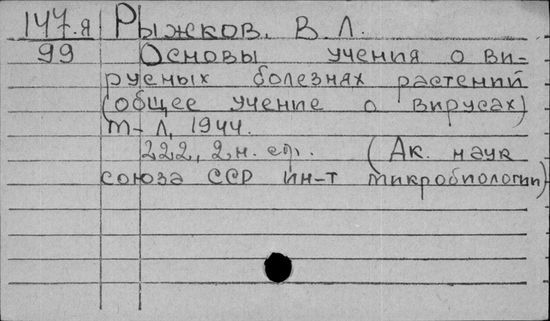 147.я Рыжков. В. Л.
99 Основы учения о ви-
русных болезнях растений
(общее учение о вирусах)
М-Л, 1944.
222, 2 н. стр. (Ак. наук
союза ССР ин-т микробиологии)